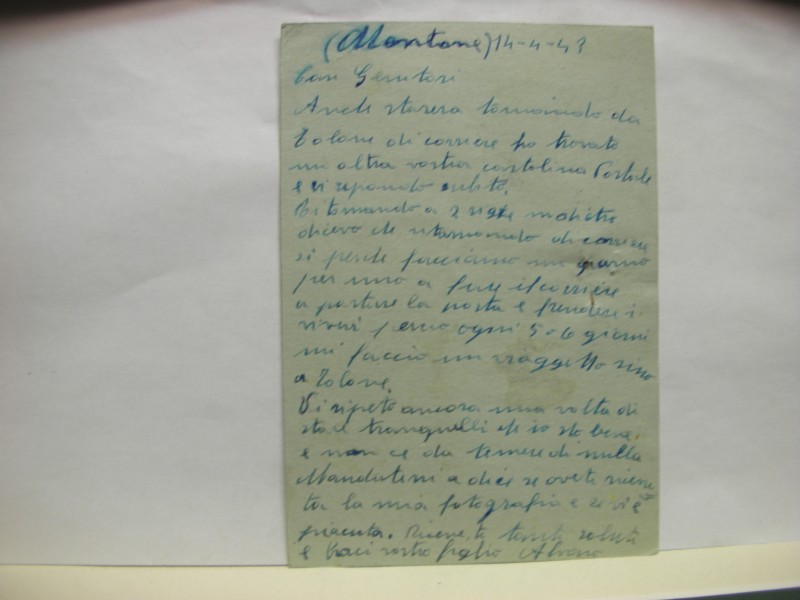 (Mentone) 14-4-43
Cari Genitori
Anche stasera tornando da
Tolone di corriere ho trovato
un altra vostra cartolina Postale
e vi rispondo subito.
Ritornando a 2 righe indietro
dicevo che ritornando di corriere
si perche facciamo un giorno
per uno a fare il corriere
a portare la posta e prendere i
viveri percio ogni 5 o 6 giorni
mi faccio un viaggetto sino
a Tolone.
Vi ripeto ancora una volta di
stare tranquilli che io sto bene
e non ce da temere di nulla
Mandatemi a dire se avete ricevu
ta la mia fotografia e se vi è
piaciuta. Ricevete tanti saluti
e baci vostro figlio Alvaro